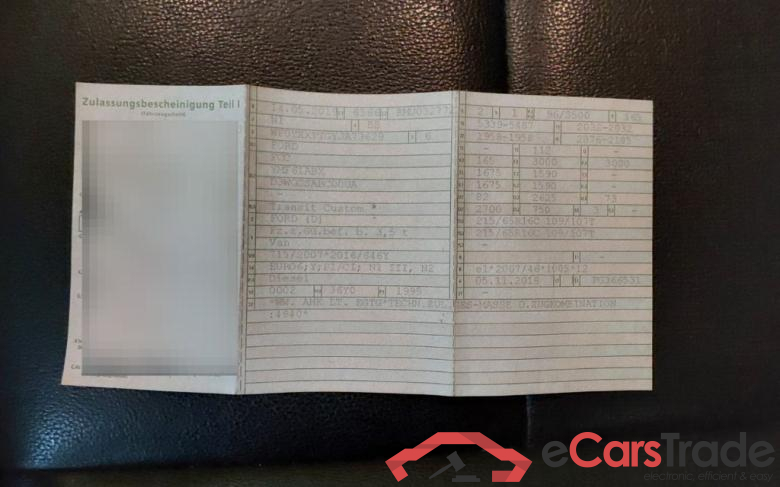 Zulassungsbescheinigung Teil I
(Fahrzeugschein)
14.05.2019
N1
FORD
FCC
YMF61ABX
-
Transit Custom *
FORD (D)
Fz.z.Gü.bef. b. 3,5 t
Van
715/2007*2016/646Y
EURO6;Y;PI/CI; N1 III, N2
Diesel
0002 36Y0 1995
*WW. AHK LT. EGTG*TECHN.ZUL.GES-MASSE D.ZUGKOMBINATION
:4840*
2 1 96/3500
5339-5487 2032-2032
1958-1958
- 112 -
165 3000 3000
1675 1590 -
1675 1590 -
82 2625 73
2700 750 3 -
215/65R16C 109/107T
215/65R16C 109/107T
-
- -
e1*2007/46*1005*12
05.11.2018 PG366531
-
eCarsTrade
electronic, efficient & easy